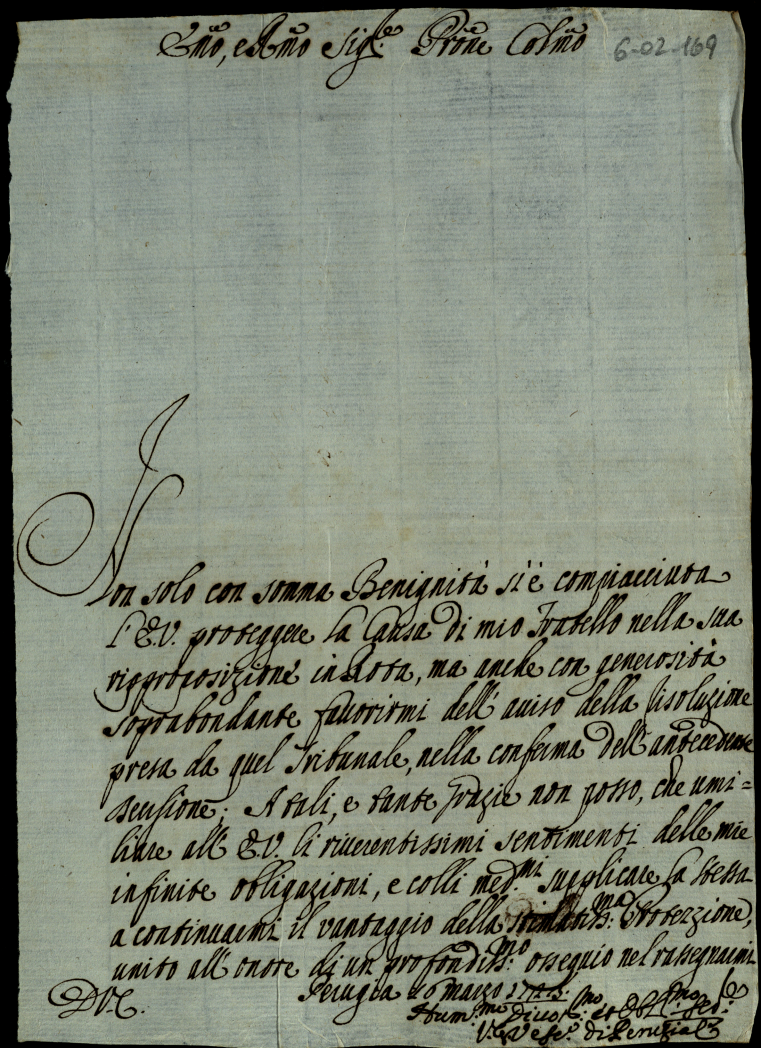 Emõ, e Rmõ Sig.re Prõne Colmõ
6-02-169
Non solo con somma Benignità si è compiacciuta
l'E.V. proteggere la Causa di mio Fratello nella sua
riproposizione in Rota, ma anche con generosità
soprabondante favorirmi dell'auiso della risoluzione
presa da quel Tribunale, nella conferma dell'antecedente
decisione; A tali, e tante grazie non posso, che umi=
liare all'E.V. li riuerentissimi sentimenti delle mie
infinite obligazioni, e colli med.mi supplicare la stessa
a continuarmi il vantaggio della stimatiss.ma Protezzione,
unito all'onore di un profondiss.mo ossequio nel rassegnarmi
Perugia 26 marzo
D.V.E.
Hum.mo Diuot.mo et Obl.mo Ser.re
V. Vesc.o di Perugia